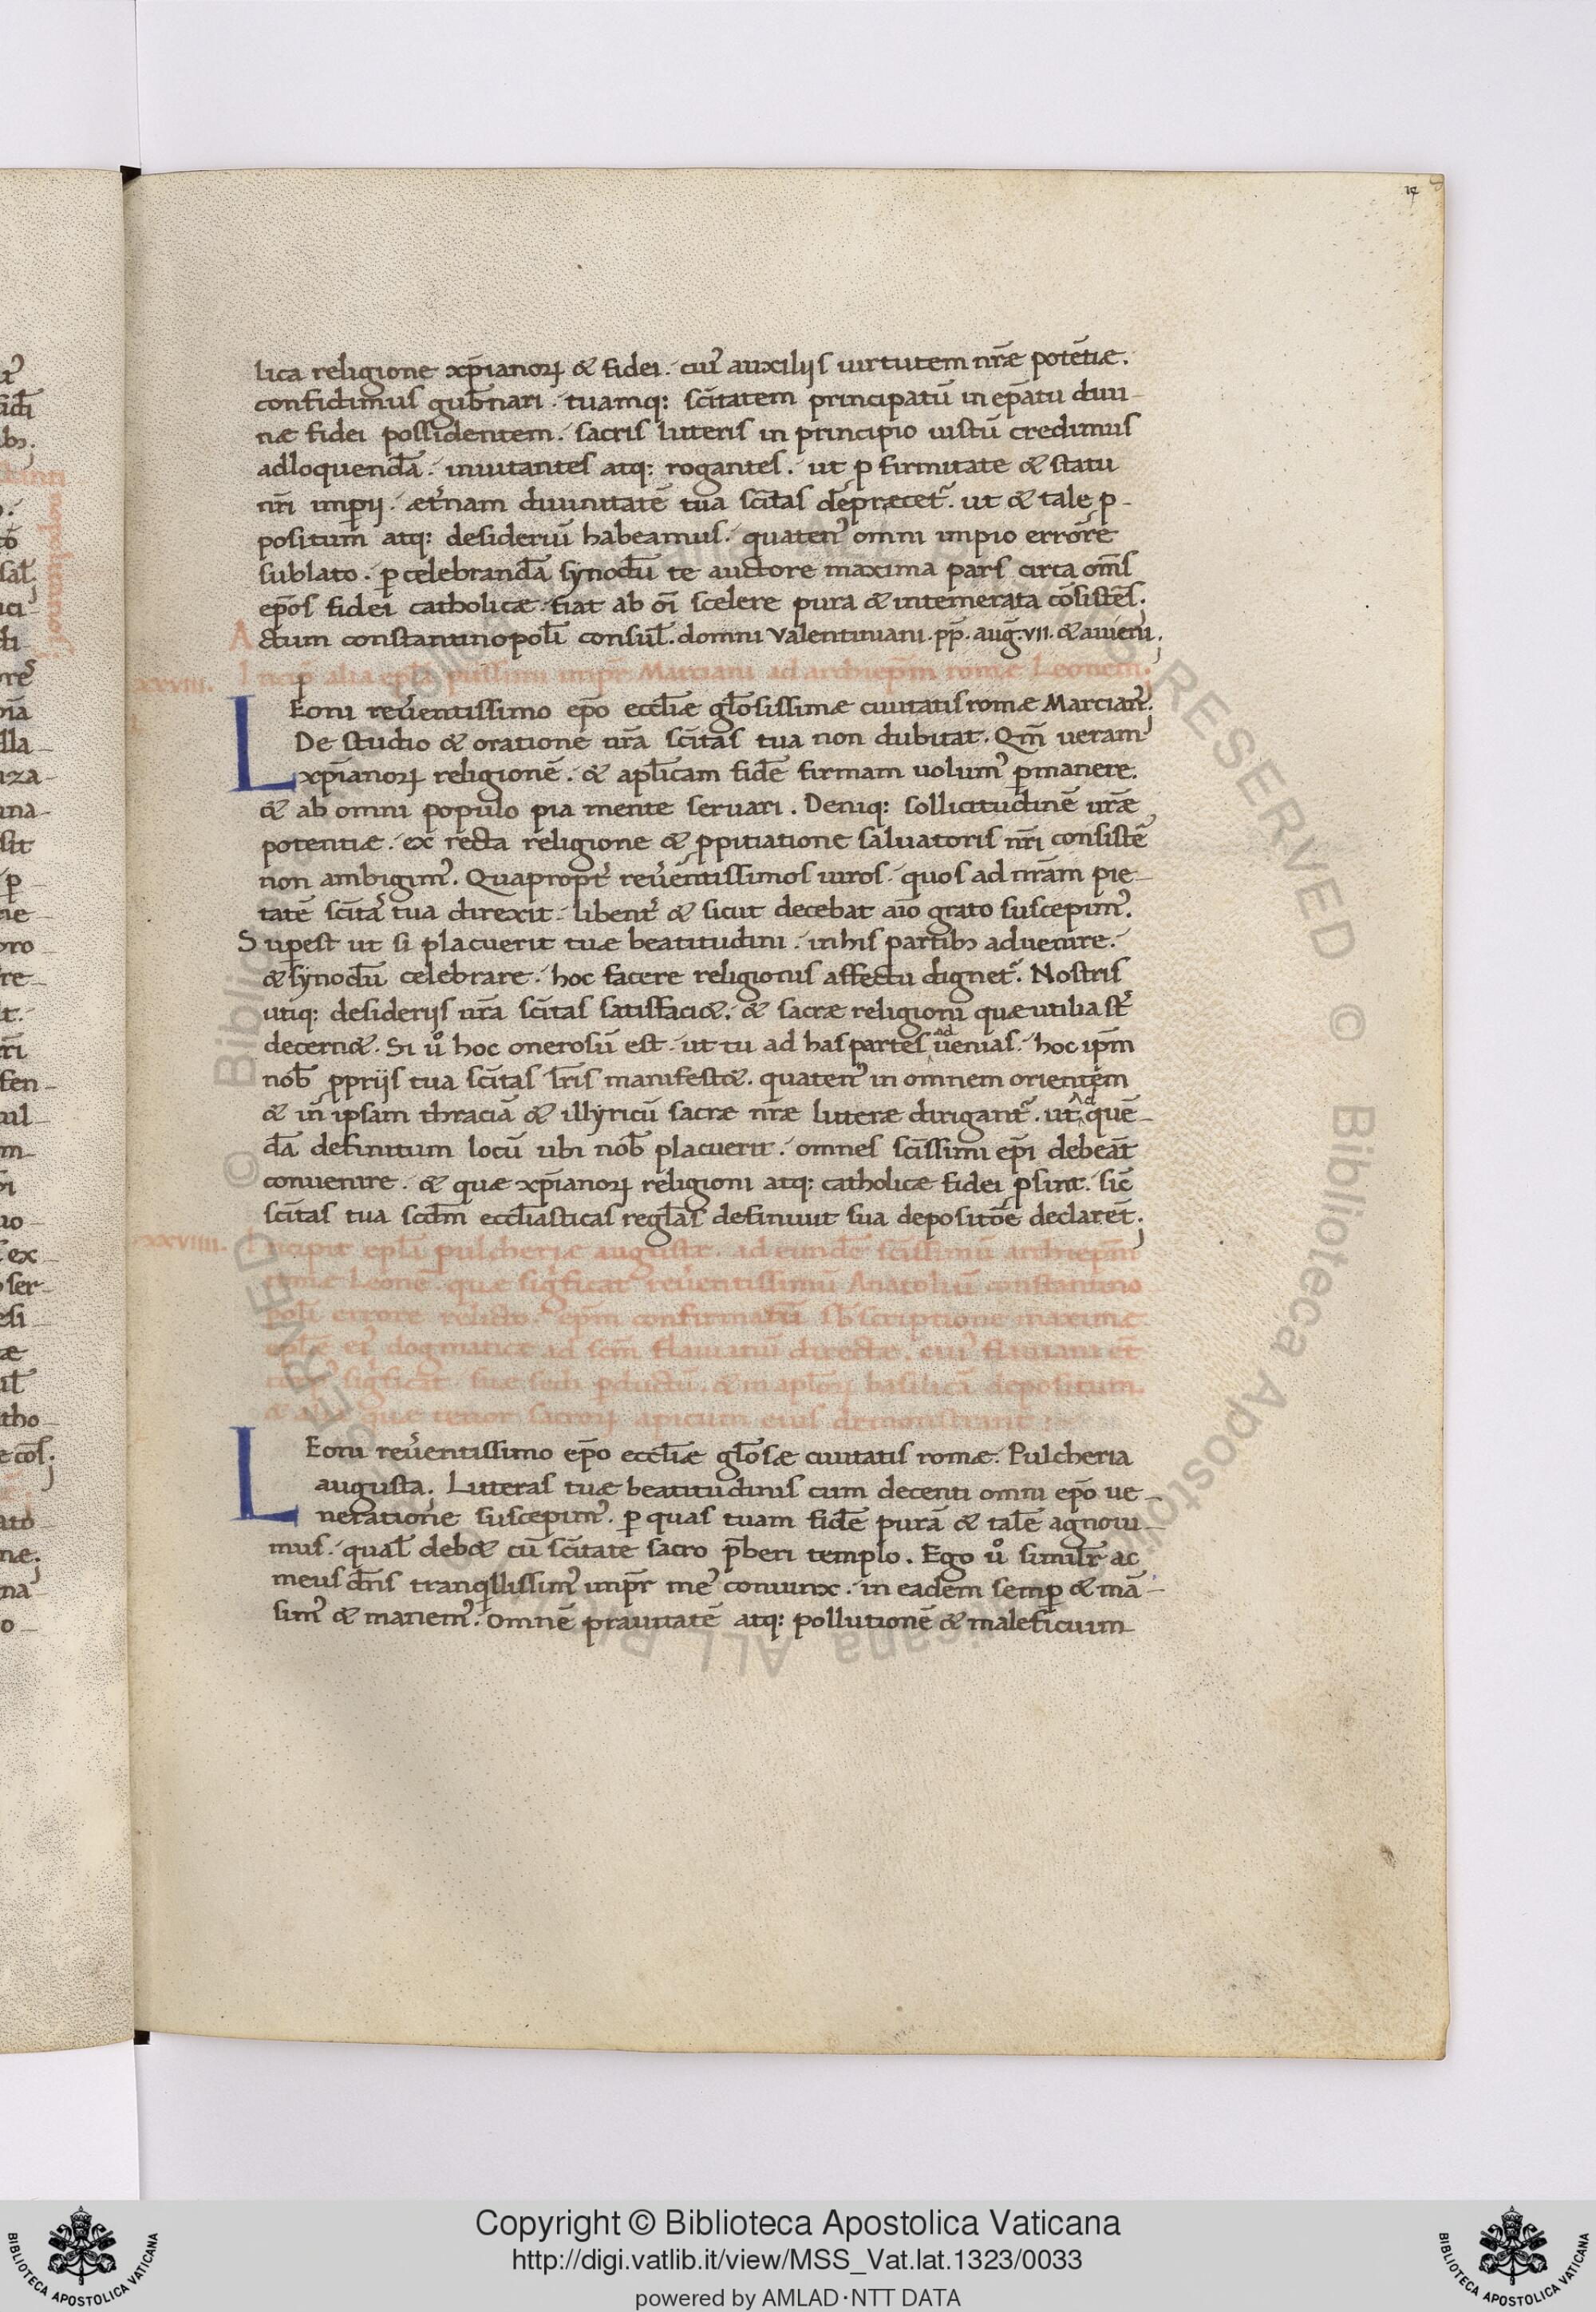 14
lica religione xp̄ianoꝝ & fidei. cui᾽ auxiliis uirtutem nr̄æ potētiæ.
confidimus gub̄nari. tuamq: sc̄itatem principatū in ep̄atu diui-
næ fidei possidentem. sacris litteris in principio iustū credimus
adloquendā. inuitantes atq: rogantes. ut ꝓ firmitate & statu
nr̄i imꝑij. æt᾽nam diuinitatē tua sc̄itas deprǽcet᾽. ut & tale ꝓ-
positum atq: desideriū habeamus. quaten᾽ omni impio errore
sublato. ꝑ celebrandā synodū te auctore maxima pars circa om̄s
ep̄os fidei catholicæ fiat ab oī scelere pura & intemerata cōsistēs.
Actum constantinopoli consul̄. domni Valentiniani. pp̄. aug̅. VII. & auieni.
XXVIII. Incip̄ alia ep̄la piissimi imp̄r Marciani ad archiep̄m romæ Leonem.
LEoni reu᾽entissimo ep̄o eccl̄iæ gl̄osissimæ ciuitatis romæ Marcian᾽.
De studio & oratione nr̄a sc̄itas tua non dubitat. Qm̄ ueram
xp̄ianoꝝ religionē. & apl̄icam fidē firmam uolum᾽ ꝑmanere.
& ab omni populo pia mente seruari. Deniq: sollicitudinē nr̄æ
potentiæ. ex recta religione & ꝓpitiatione saluatoris nr̄i consistē
non ambigim᾽. Quapropt᾽ reu᾽entissimos uiros. quos ad nr̄am pie-
tatē sc̄itas tua direxit. libent᾽ & sicut decebat aīo grato suscepim᾽.
Suꝑest ut si placuerit tuæ beatitudini. in his partibꝫ aduenire.
& synodū celebrare. hoc facere religionis affectu dignet᾽. Nostris
utiq: desiderijs nr̄a sc̄itas satisfaci&. & sacræ religioni quæ utilia st̄
decern&. Si ůo hoc onerosū est. ut tu ad has partes ad uenias. hoc ip̄m
nob̄ ꝓprijs tua sc̄itas lr̄is manifest&. quaten᾽ in omnem orientem
& in ipsam thraciā & illyricū sacræ nr̄æ litteræ dirigant᾽. ut ad quē-
dā definitum locū ubi nob̄ placuerit. omnes sc̄issimi ep̄i debeāt
conuenire. & quæ xp̄ianoꝝ religioni atq: catholicæ fidei ꝓsint. sic̄
sc̄itas tua scd̄m eccl̄iasticas regl̄as definiuit sua depositōe declaret.
XXVIIII. Incipit epl̄a pulcheriæ augustæ. ad eundē sc̄issimū archiep̄m
romæ Leonē. quæ sig᾽ficat reu᾽entissimū Anatoliū constantino
poli errore relicto. ep̄m confirmatū sb̄scriptione maximæ
epl̄æ ei᾽ dogmaticæ ad sc̄m flauianū directæ. cui᾽ flauiani et̄
sig᾽ficat suæ sedi ꝑductū. & in apl̄oꝝ basilicā depositum.
& alia quæ tenor sacroꝝ apicum eius demonstrant:
LEoni reu᾽entissimo ep̄o eccl̄iæ gl̄osæ ciuitatis romæ. Pulcheria
augusta. Litteras tuæ beatitudinis cum decenti omni ep̄o ue-
neratione suscepim᾽. ꝑ quas tuam fidē purā & talē agnoui-
mus. qual̄ deb& cū sc̄itate sacro p̄beri templo. Ego ůo similr̄ ac
meus dn̄s tranqillissim᾽ imp̄r me᾽ coniunx. in eadem semꝑ & mā-
sim᾽ & manem᾽. Omnē prauitatē atq: pollutionē & maleficium
© Biblioteca Apostolica Vaticana ALL RIGHTS RESERVED
Copyright © Biblioteca Apostolica Vaticana
http://digi.vatlib.it/view/MSS_Vat.lat.1323/0033
powered by AMLAD·NTT DATA
BIBLIOTECA APOSTOLICA VATICANA
BIBLIOTECA APOSTOLICA VATICANA